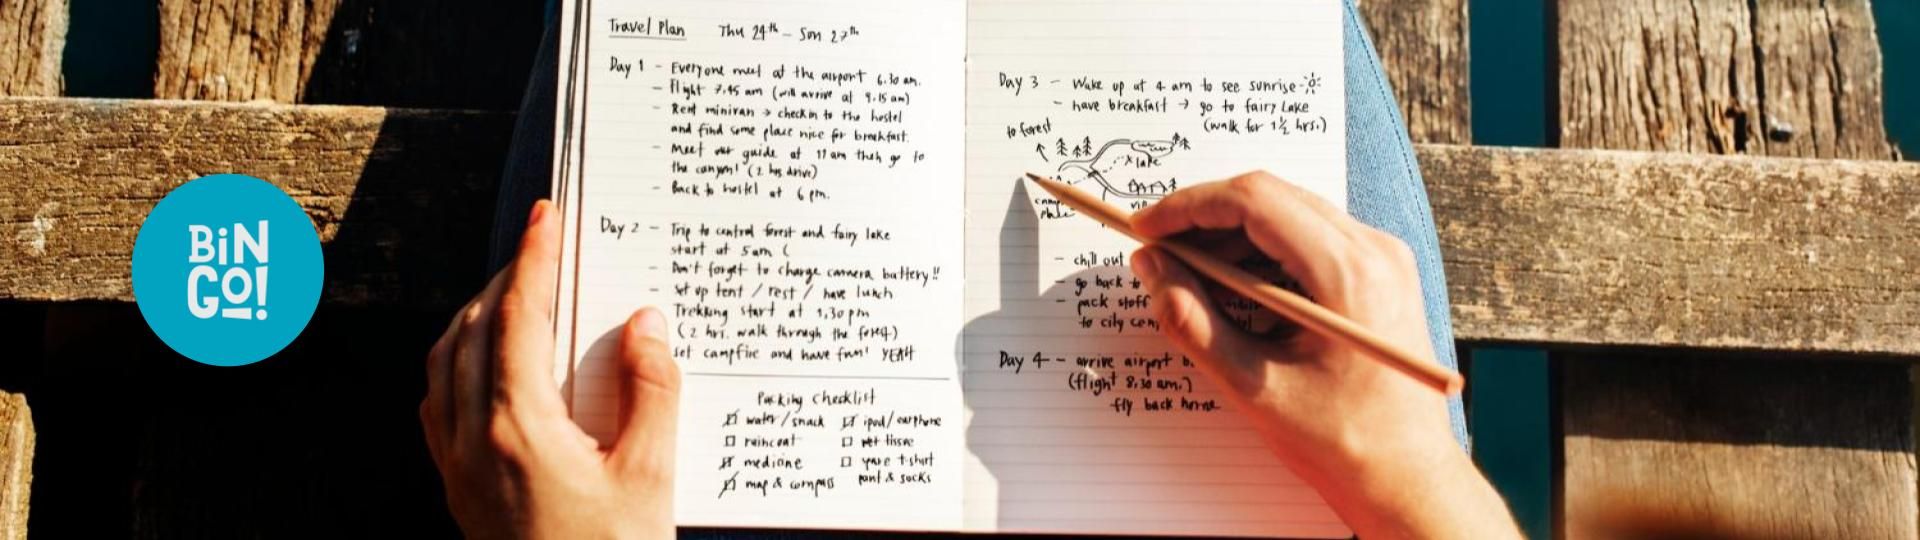 BiNGO!
Travel Plan Thu 24th - Sun 27th
Day 1 - Everyone meet at the airport 6.30 am.
- flight 7.45 am (will arrive at 9.15 am)
- Rent minivan → checkin to the hostel
and find some place nice for breakfast.
- Meet our guide at 11 am then go to
the canyon! (2 hrs drive)
- Back to hostel at 6 pm.
Day 2 - Trip to central forest and fairy lake
start at 5 am (
- Don't forget to charge camera battery!!
- Set up tent / rest / have lunch
Trekking start at 1,30 pm
(2 hrs. walk through the forest)
set campfire and have fun! YEAH
Packing Checklist
water/snack
raincoat
medicine
map & compass
ipod/earphone
wet tissue
t-shirt
pant & socks
Day 3 - Wake up at 4 am to see sunrise
- have breakfast → go to fairy Lake
(walk for 1½ hrs.)
to forest
lake
- chill out
- go back to
- pack stuff
to city cen
Day 4 - arrive airport
(flight 8,30 am.)
fly back home